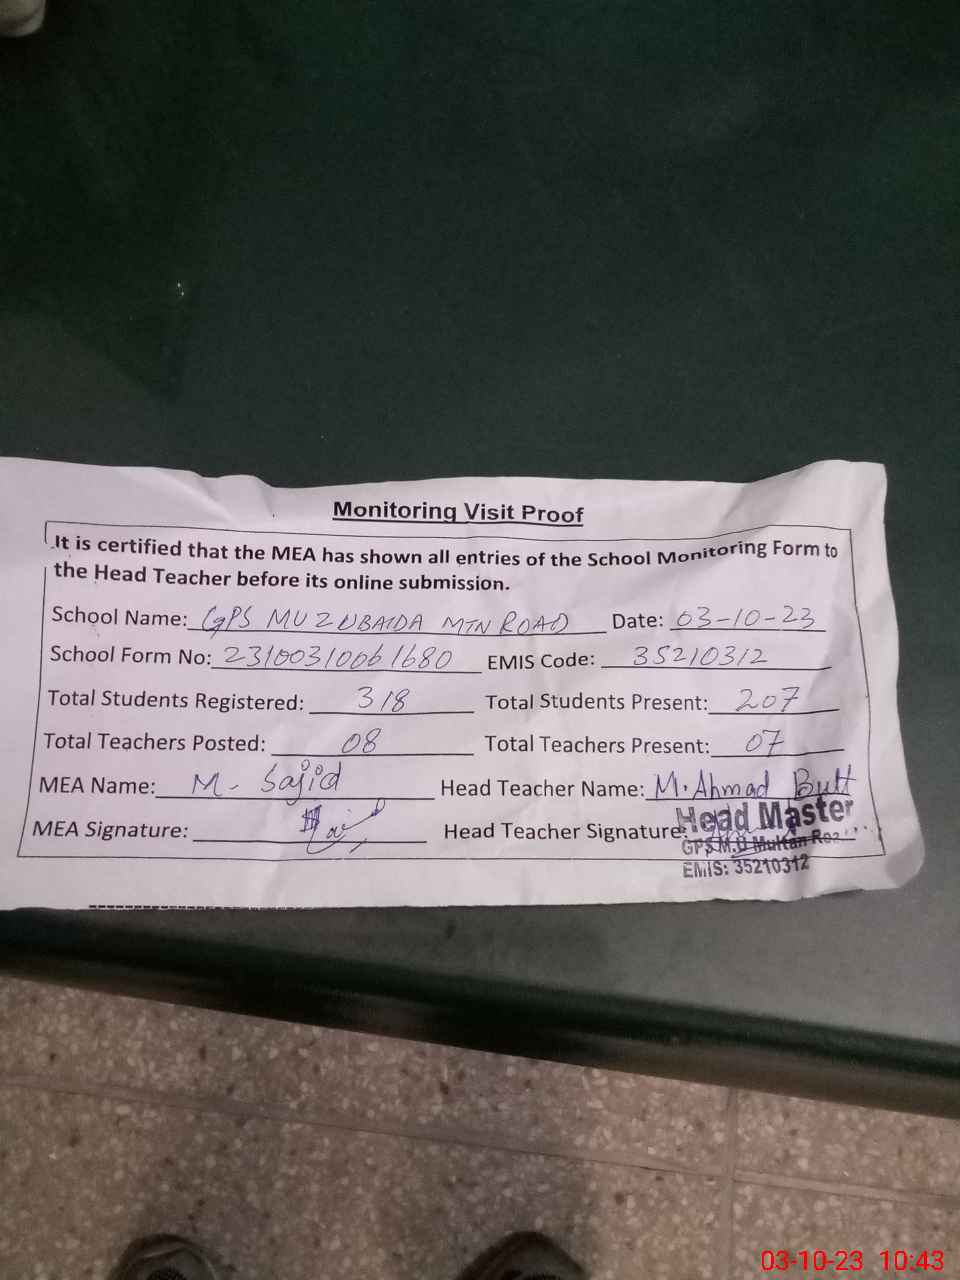 Monitoring Visit Proof
It is certified that the MEA has shown all entries of the School Monitoring Form to
the Head Teacher before its online submission.
School Name: GPS MU ZUBAIDA MTN ROAD Date: 03-10-23
School Form No: 23100310061680 EMIS Code: 35210312
Total Students Registered: 318 Total Students Present: 207
Total Teachers Posted: 08 Total Teachers Present: 07
MEA Name: M. Sajid Head Teacher Name: M. Ahmad Butt
MEA Signature: Head Teacher Signature:
Head Master
GPS M.U Multan Roa
EMIS: 35210312
03-10-23 10:43